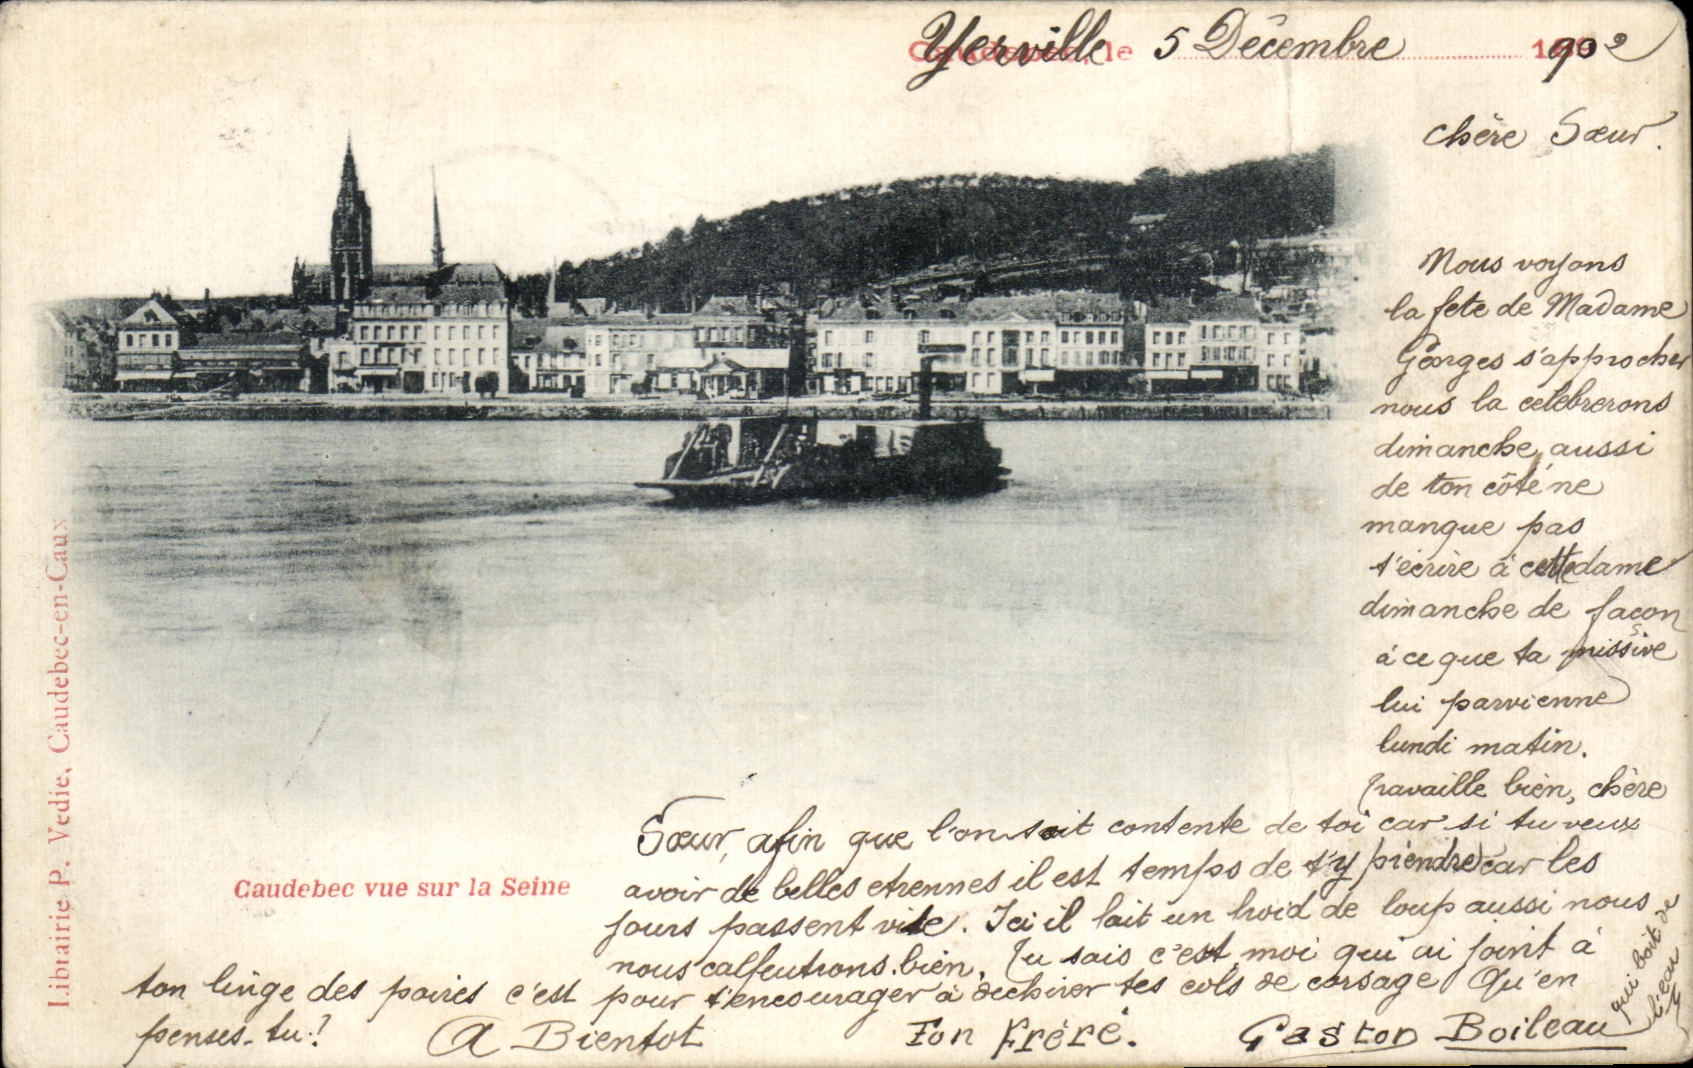 Yerville 5 Décembre 1902
Caudebec, le
chère Sœur.
Nous voyons
la fete de Madame
Georges s'approcher
nous la celebrerons
dimanche, aussi
de ton côté ne
manque pas
d'écrire à cette dame
dimanche de facon
à ce que ta missive
lui parvienne
lundi matin.
Travaille bien, chère
Sœur, afin que l'on soit contente de toi car si tu veux
avoir de belles etrennes il est temps de t'y prendre car les
jours passent vite. Ici il fait un froid de loup aussi nous
nous calfeutrons bien. Tu sais c'est moi qui ai joint à
ton linge des poires c'est pour t'encourager à dechirer tes cols de corsage Qu'en
penses-tu? A Bientot Ton Frère. Gaston Boileau
qui boit de
l'eau
Caudebec vue sur la Seine
Librairie P. Vedie, Caudebec-en-Caux